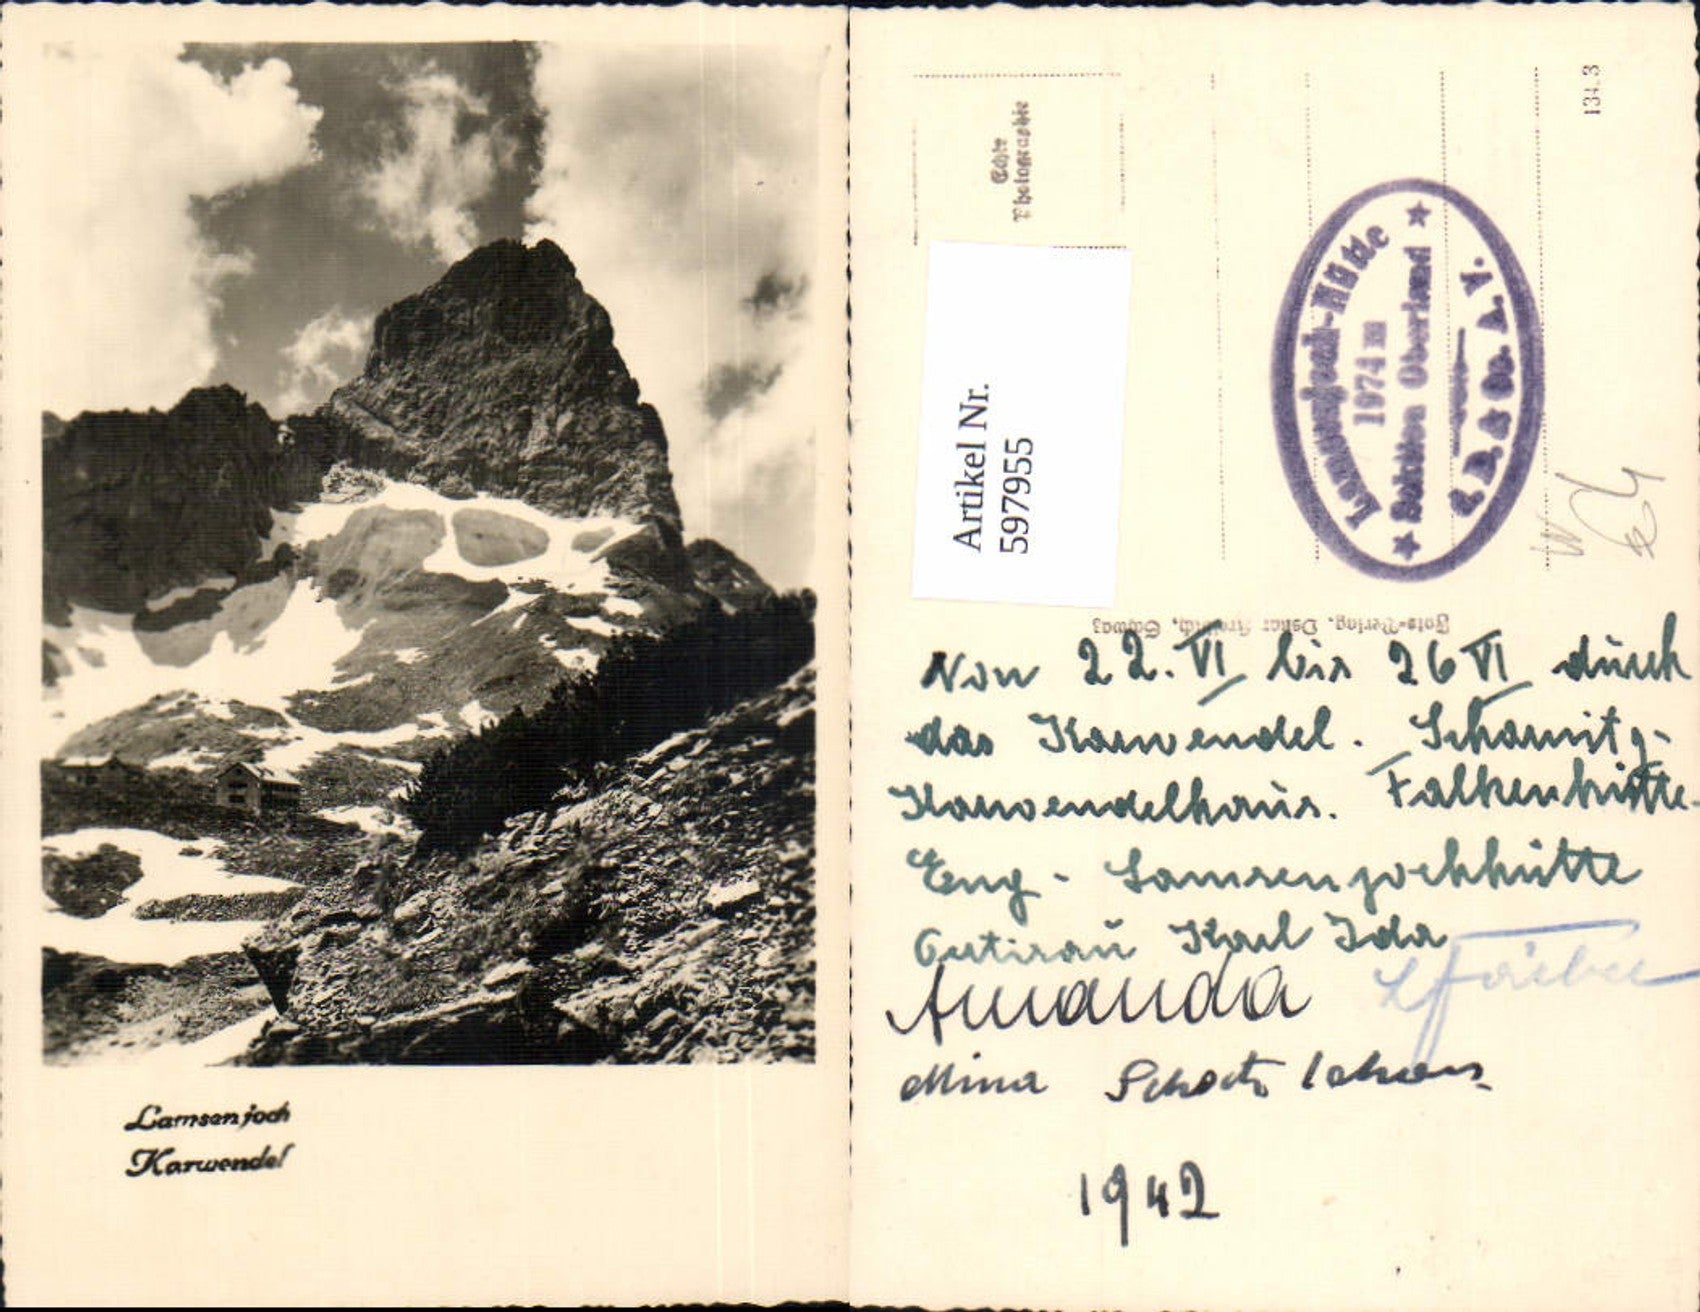 Lamsenjoch
Karwendel
Echte
Photographie
134.3
Lamsenjoch-Hütte
1974 m
★ Sektion Oberland ★
d. D. & Oe. A. V.
Artikel Nr.
597955
Foto-Verlag, Schwaz
Von 22. VI bis 26 VI durch
das Karwendel. Scharnitz-
Karwendelhaus. Falkenhütte-
Eng - Lamsenjochhütte
Karl Ida
Amanda
Mina
1942